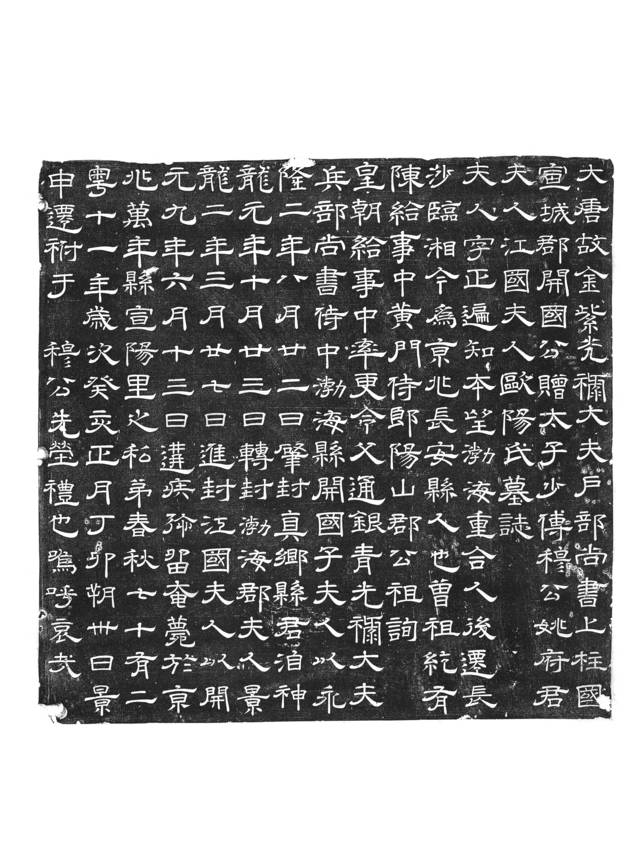 大唐故金紫光祿大夫戶部尚書上柱國
宣城郡開國公贈太子少傅穆公姚府君
夫人江國夫人歐陽氏墓誌
夫人字正遍知本望渤海重合人後遷長
沙臨湘今爲京兆長安縣人也曾祖紇有
陳給事中黃門侍郎陽山郡公祖詢
皇朝給事中率更令父通銀青光祿大夫
兵部尚書侍中渤海縣開國子夫人以永
隆二年八月廿二日肇封真鄉縣君洎神
龍元年十月廿三日轉封渤海郡夫人景
龍二年三月廿七日進封江國夫人以開
元九年六月十三日遘疾弥留奄薨於京
兆萬年縣宣陽里之私弟春秋七十有二
粵十一年歲次癸亥正月丁卯朔卅日景
申遷祔于 穆公先塋禮也嗚呼哀哉